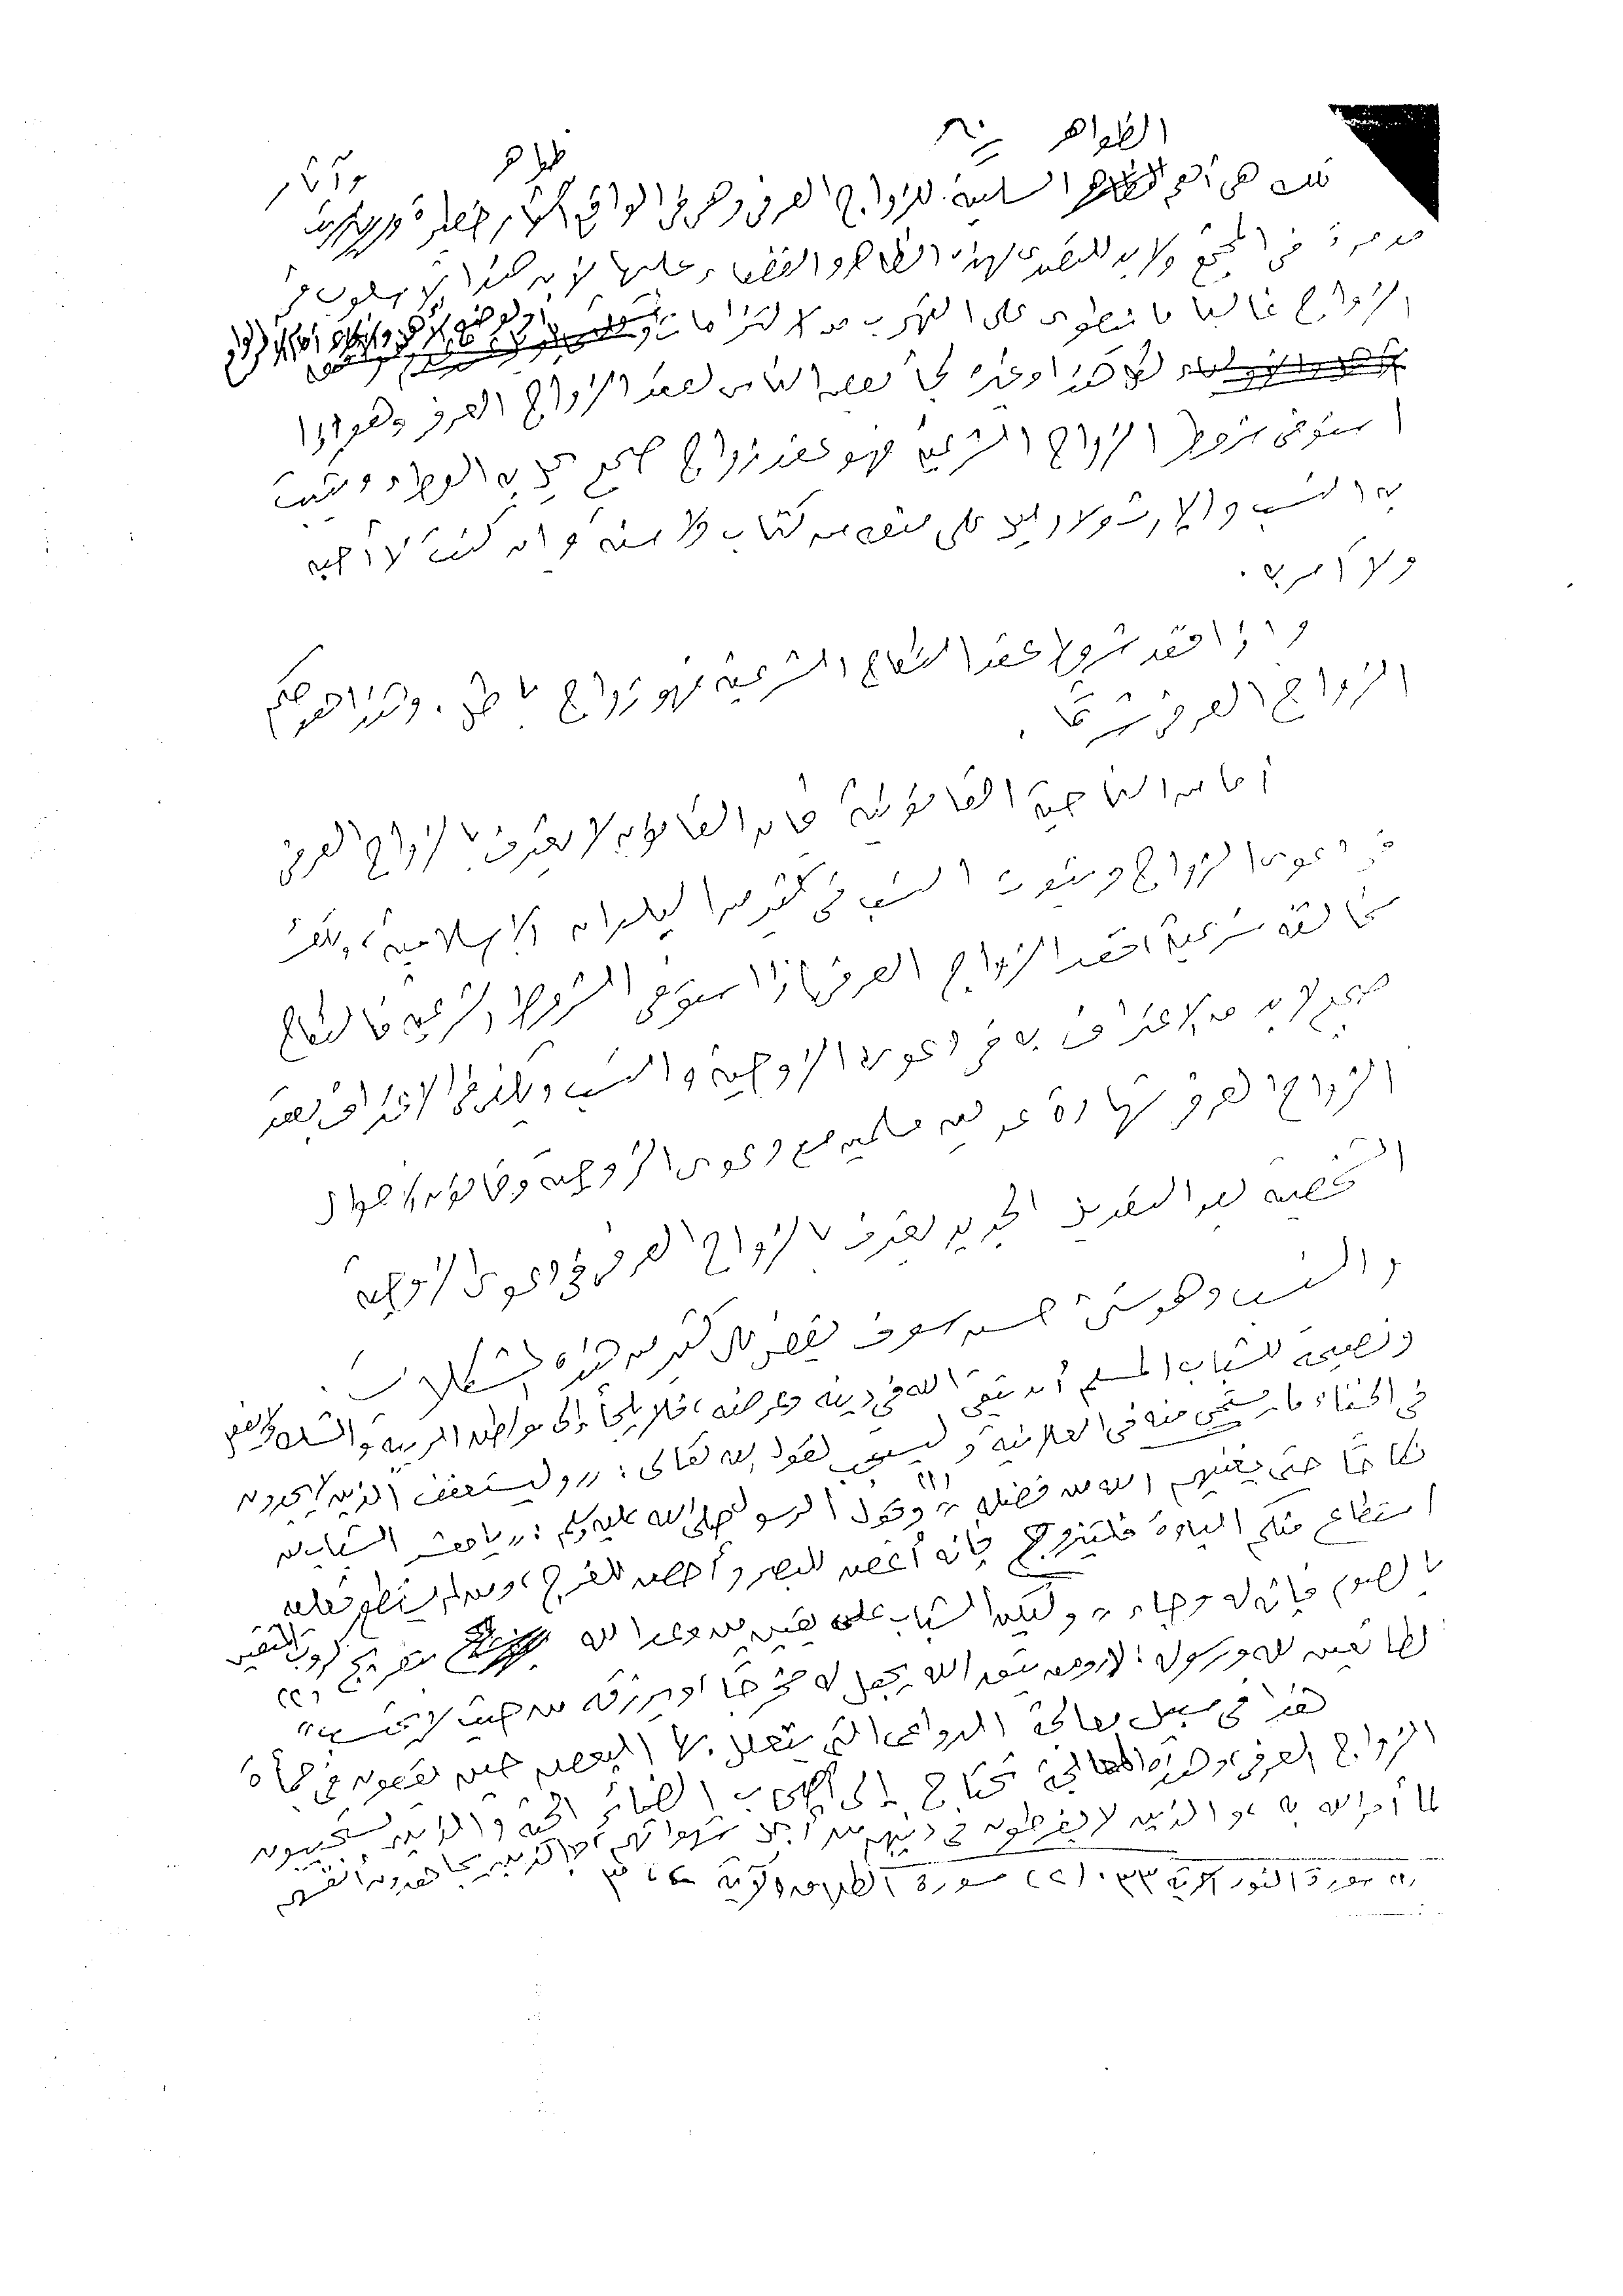 الظواهر
ظواهر
وآثار
تلك هى أهم السلبية للزواج العرفى وهى فى الواقع أكثر خطرا
مدمرة فى المجتمع ولابد للتصدى لهذه الظاهرة والقضاء عليها لأن هذا الأسلوب فى
الزواج غالبا ما ينطوى على التهرب من الالتزامات
هذا وغيره لجأ بعض الناس لعقد الزواج العرفى وهو إذا
استوفى شروط الزواج الشرعية فهو عقد زواج صحيح يحل به الوطء ويثبت
به النسب والإرث ولا دليل على منعه من كتاب ولا سنة وإن كنت لا أحبه
ولا آمر به .
وإذا فقد شروط عقد النكاح الشرعية فهو زواج باطل . وهذا هو حكم
الزواج العرفى شرعًا .
أما من الناحية القانونية فإن القانون لا يعترف بالزواج العرفى
فى دعوى الزواج وثبوت النسب فى كثير من البلدان الإسلامية، وتلك
مخالفة شرعية فعقد الزواج العرفى إذا استوفى الشروط الشرعية فالنكاح
صحيح لابد من الاعتراف به فى دعوى الزوجية والنسب ويكفى الاعتراف بعقد
الزواج العرفى شهادة عدلين مسلمين مع دعوى الزوجية وقانون الأحوال
الشخصية بعد التعديل الجديد يعترف بالزواج العرفى فى دعوى الزوجية
والنسب وهو شىء حسن سوف يقضى على كثير من هذه المشكلات .
ونصيحة للشباب المسلم أن يتقى الله فى دينه وعرضه، فلا يلجأ إلى مواطن الريبة والشك ولا يفعل
فى الخفاء ما يستحى منه فى العلانية وليستجب لقول الله تعالى : " وليستعفف الذين لا يجدون
نكاحًا حتى يغنيهم الله من فضله " (١) وقول الرسول صلى الله عليه وسلم : " يا معشر الشباب من
استطاع منكم الباءة فليتزوج فإنه أغض للبصر وأحصن للفرج، ومن لم يستطع فعليه
بالصوم فإنه له وجاء " وليكن الشباب على يقين من وعد الله بتفريج كروب المتقين
الطائعين لله ورسوله : " ومن يتق الله يجعل له مخرجًا ويرزقه من حيث لا يحتسب " (٢)
هذا فى سبيل معالجة الدواعى التى يتعلل بها البعض حين يقعون فى حمأة
الزواج العرفى وهذه المعالجة تحتاج إلى أصحاب الضمائر الحية والذين يستجيبون
لما أمر الله به ، والذين لا يفرطون فى دينهم من أجل شهواتهم والذين يجاهدون أنفسهم
(١) سورة النور الآية ٣٣ . (٢) سورة الطلاق الآية ٢ ، ٣